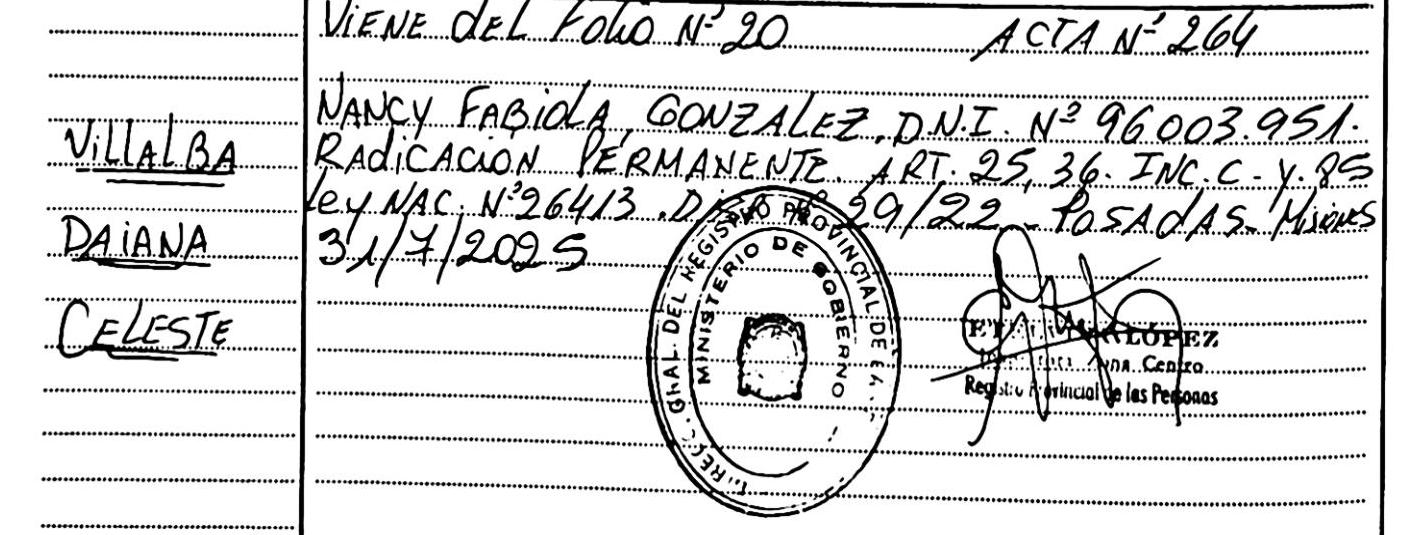 VIENE dEL FoLio Nº 20 ACTA Nº 264
NANCY FABiOLA GONZALEZ. D.N.I. Nº 96.003.951.
RADiCACION PERMANENTE. ART. 25, 36. INC. C. Y. 85
Ley NAC. Nº 26413. 29/22 - POSADAS - Misiones
31/7/2025
VILLALBA
DAIANA
CELESTE
GRAL DEL REGISTRO PROVINCIAL DE
MINISTERIO DE GOBIERNO
LÓPEZ
Centro
Registro Provincial de las Personas